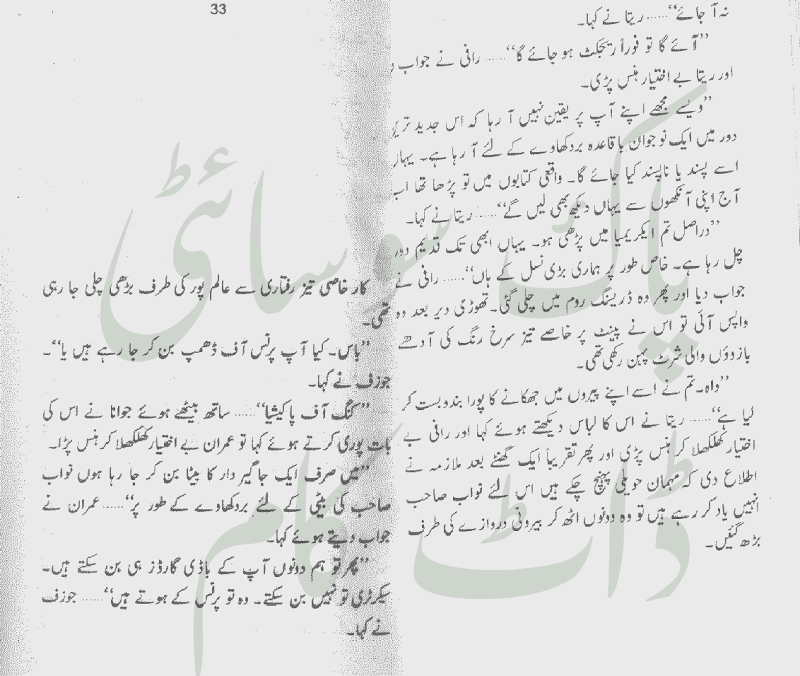 نہ آ جائے‘‘...... ریتا نے کہا۔
’’آئے گا تو فوراً ریجکٹ ہو جائے گا‘‘...... رافی نے جواب
اور ریتا بے اختیار ہنس پڑی۔
’’ویسے مجھے اپنے آپ پر یقین نہیں آ رہا کہ اس جدید ترین
دور میں ایک نوجوان باقاعدہ بردکھاوے کے لئے آ رہا ہے۔ یہاں
اسے پسند یا ناپسند کیا جائے گا۔ واقعی کتابوں میں تو پڑھا تھا اب
آج اپنی آنکھوں سے یہاں دیکھ بھی لیں گے‘‘...... ریتا نے کہا۔
’’دراصل تم ایکریمیا میں پڑھی ہو۔ یہاں ابھی تک قدیم دور
چل رہا ہے۔ خاص طور پر ہماری بڑی نسل کے ہاں‘‘...... رافی نے
جواب دیا اور پھر وہ ڈریسنگ روم میں چلی گئی۔ تھوڑی دیر بعد وہ
واپس آئی تو اس نے پینٹ پر خاصے تیز سرخ رنگ کی آدھے
بازوؤں والی شرٹ پہن رکھی تھی۔
’’واہ۔ تم نے اسے اپنے پیروں میں جھکانے کا پورا بندوبست کر
لیا ہے‘‘...... ریتا نے اس کا لباس دیکھتے ہوئے کہا اور رافی بے
اختیار کھلکھلا کر ہنس پڑی اور پھر تقریباً ایک گھنٹے بعد ملازمہ نے
اطلاع دی کہ مہمان حویلی پہنچ چکے ہیں اس لئے نواب صاحب
انہیں یاد کر رہے ہیں تو وہ دونوں اٹھ کر بیرونی دروازے کی طرف
بڑھ گئیں۔
33
کار خاصی تیز رفتاری سے عالم پور کی طرف بڑھی چلی جا رہی
تھی۔
’’باس۔ کیا آپ پرنس آف ڈھمپ بن کر جا رہے ہیں یا‘‘۔
جوزف نے کہا۔
’’کنگ آف پاکیشیا‘‘...... ساتھ بیٹھے ہوئے جوانا نے اس کی
بات پوری کرتے ہوئے کہا تو عمران بے اختیار کھلکھلا کر ہنس پڑا۔
’’میں صرف ایک جاگیر دار کا بیٹا بن کر جا رہا ہوں نواب
صاحب کی بیٹی کے لئے بردکھاوے کے طور پر‘‘...... عمران نے
جواب دیتے ہوئے کہا۔
’’پھر تو ہم دونوں آپ کے باڈی گارڈز ہی بن سکتے ہیں۔
سیکرٹری تو نہیں بن سکتے۔ وہ تو پرنس کے ہوتے ہیں‘‘...... جوزف
نے کہا۔
پاک سوسائٹی
ڈاٹ کام